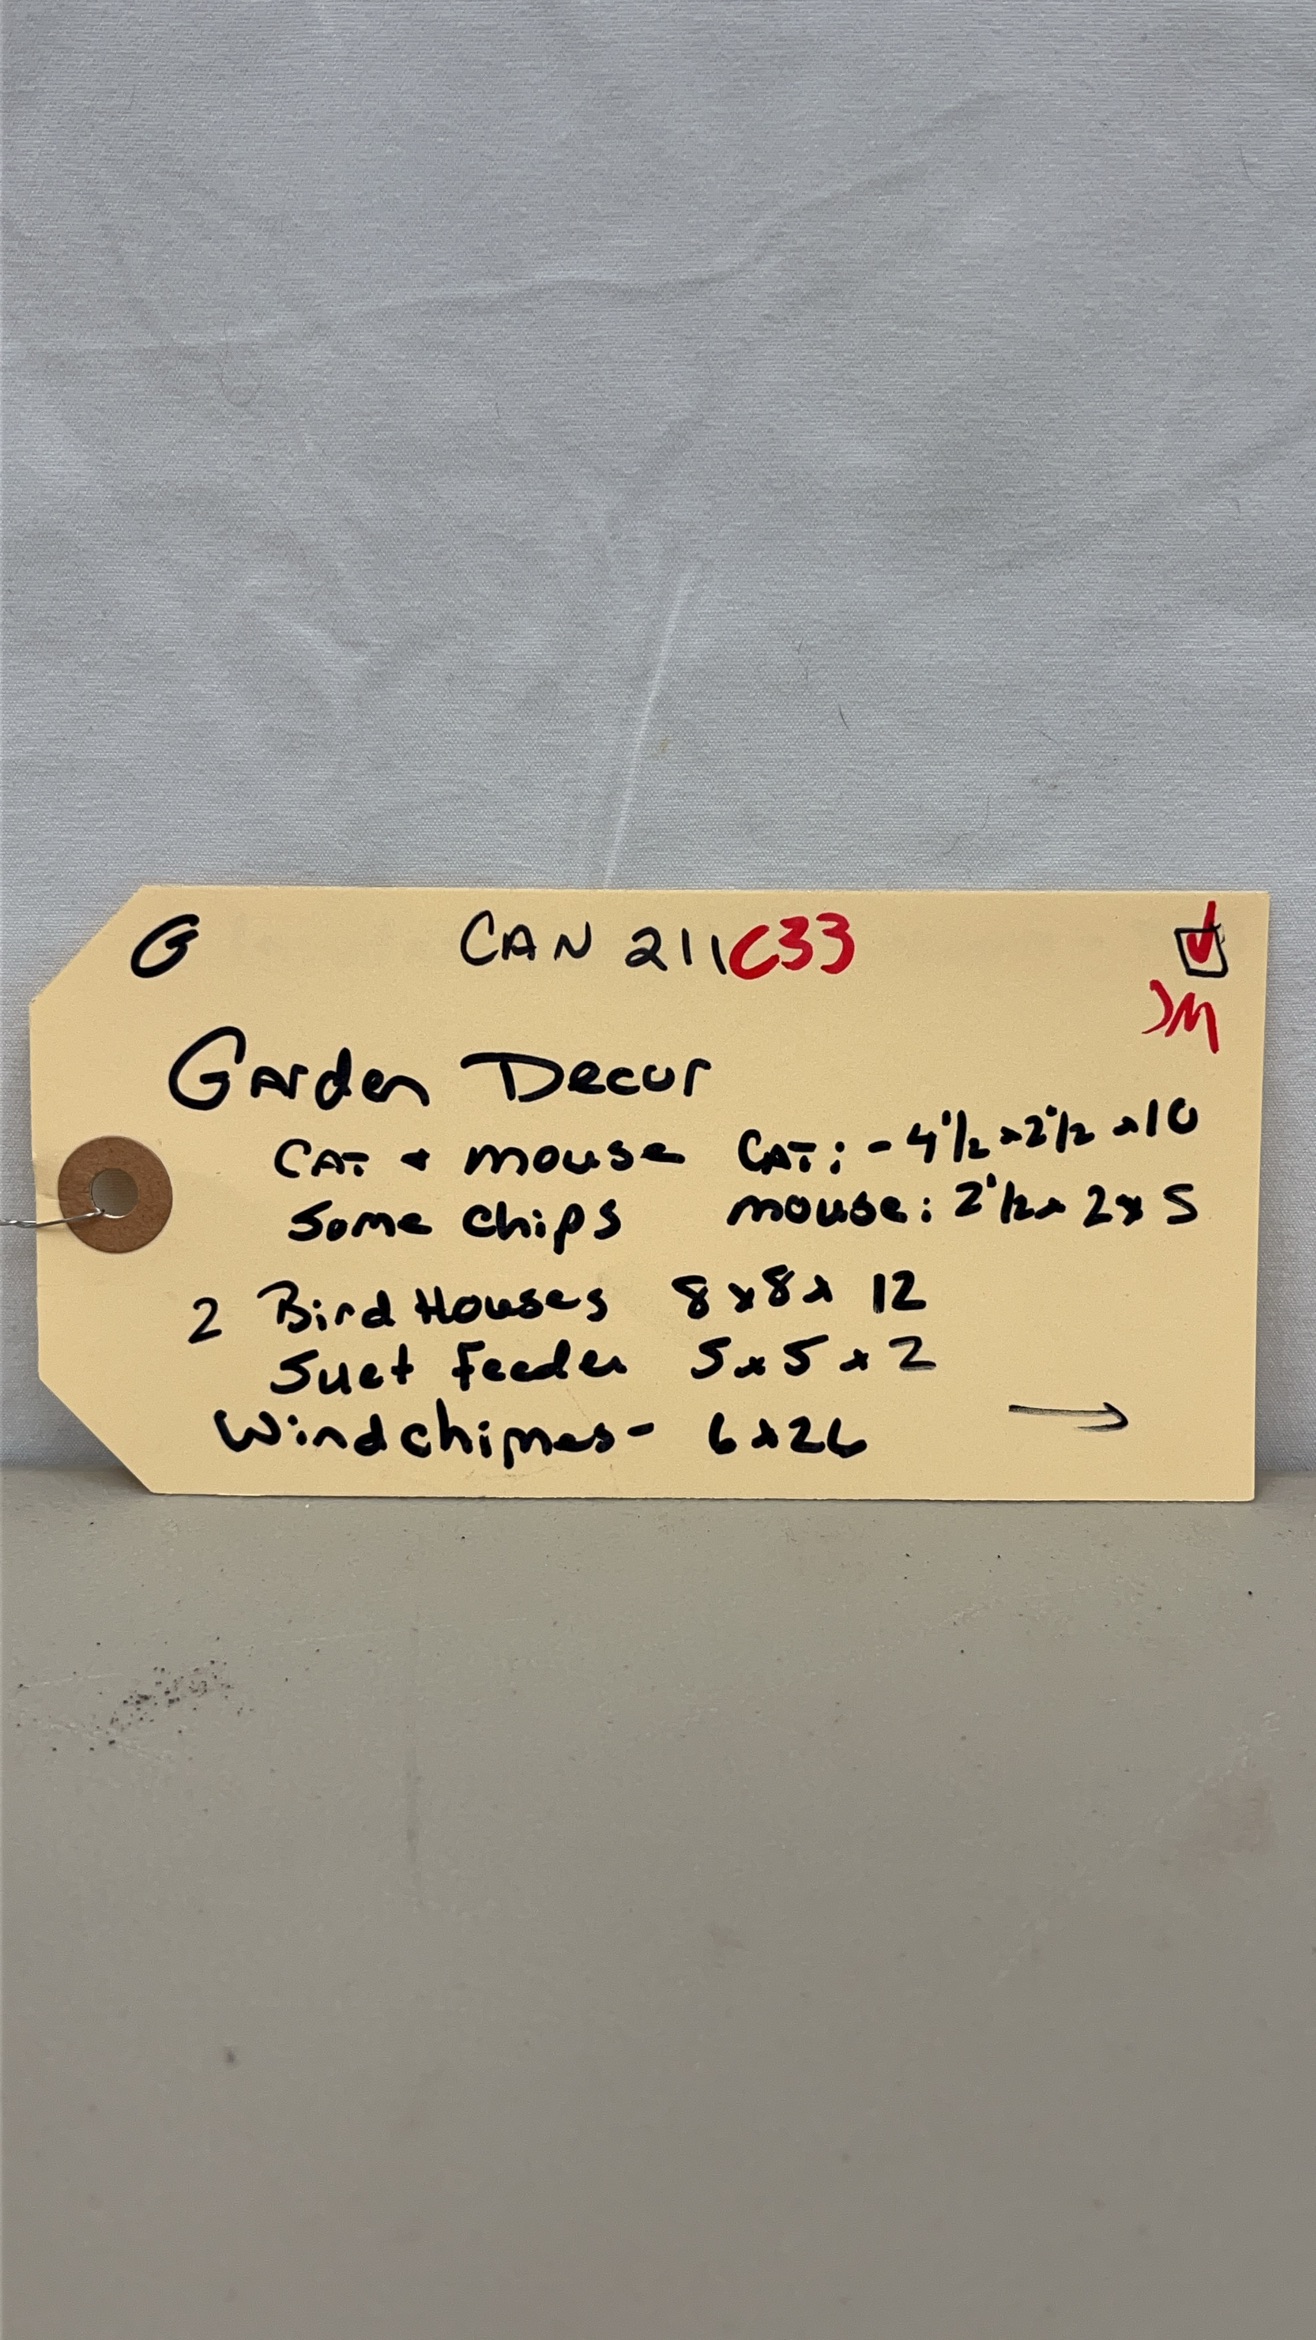 G CAN 211C33
JM
Garden Decor
CAT + mouse CAT: - 4 1/2 x 2 1/2 x 10
Some chips mouse: 2 1/2 x 2 x 5
2 Bird Houses 8 x 8 x 12
Suet Feeder 5 x 5 x 2
Windchimes - 6 x 26